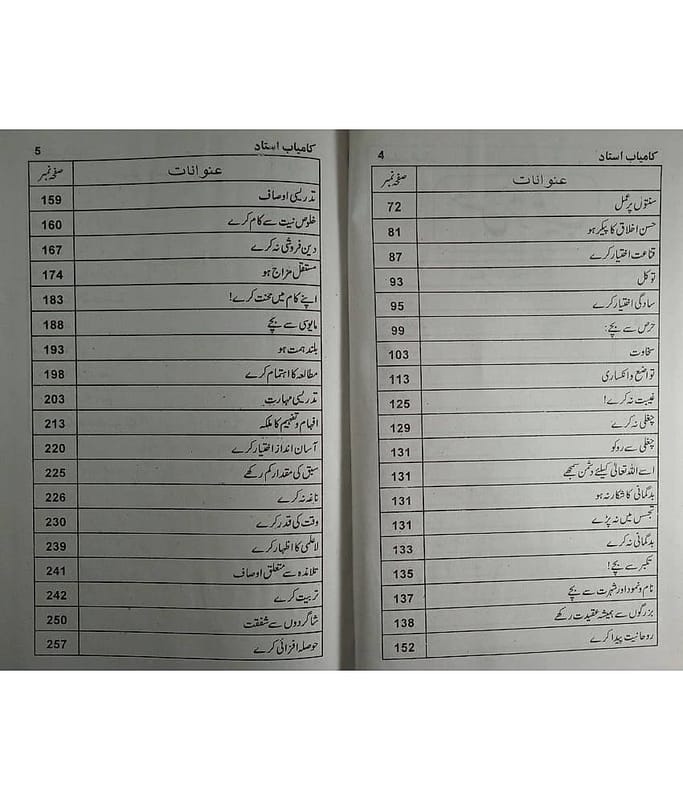 کامیاب استاد 4
عنوانات صفحہ نمبر
سنتوں پر عمل 72
حسن اخلاق کا پیکر ہو 81
قناعت اختیار کرے 87
توکل 93
سادگی اختیار کرے 95
حرص سے بچے: 99
سخاوت 103
تواضع و انکساری 113
غیبت نہ کرے! 125
چغلی نہ کرے 129
چغلی سے روکو 131
اسے اللہ تعالیٰ کیلئے دشمن سمجھے 131
بدگمانی کا شکار نہ ہو 131
تجسس میں نہ پڑے 131
بدگمانی نہ کرے 133
تکبر سے بچے! 135
نام و نمود اور شہرت سے بچے 137
بزرگوں سے ہمیشہ عقیدت رکھے 138
روحانیت پیدا کرے 152
کامیاب استاد 5
عنوانات صفحہ نمبر
تدریسی اوصاف 159
خلوص نیت سے کام کرے 160
دین فروشی نہ کرے 167
مستقل مزاج ہو 174
اپنے کام میں محنت کرے! 183
مایوسی سے بچے 188
بلند ہمت ہو 193
مطالعہ کا اہتمام کرے 198
تدریسی مہارت 203
افہام و تفہیم کا ملکہ 213
آسان انداز اختیار کرے 220
سبق کی مقدار کم رکھے 225
ناغہ نہ کرے 226
وقت کی قدر کرے 230
لاعلمی کا اظہار کرے 239
تلامذہ سے متعلق اوصاف 241
تربیت کرے 242
شاگردوں سے شفقت 250
حوصلہ افزائی کرے 257